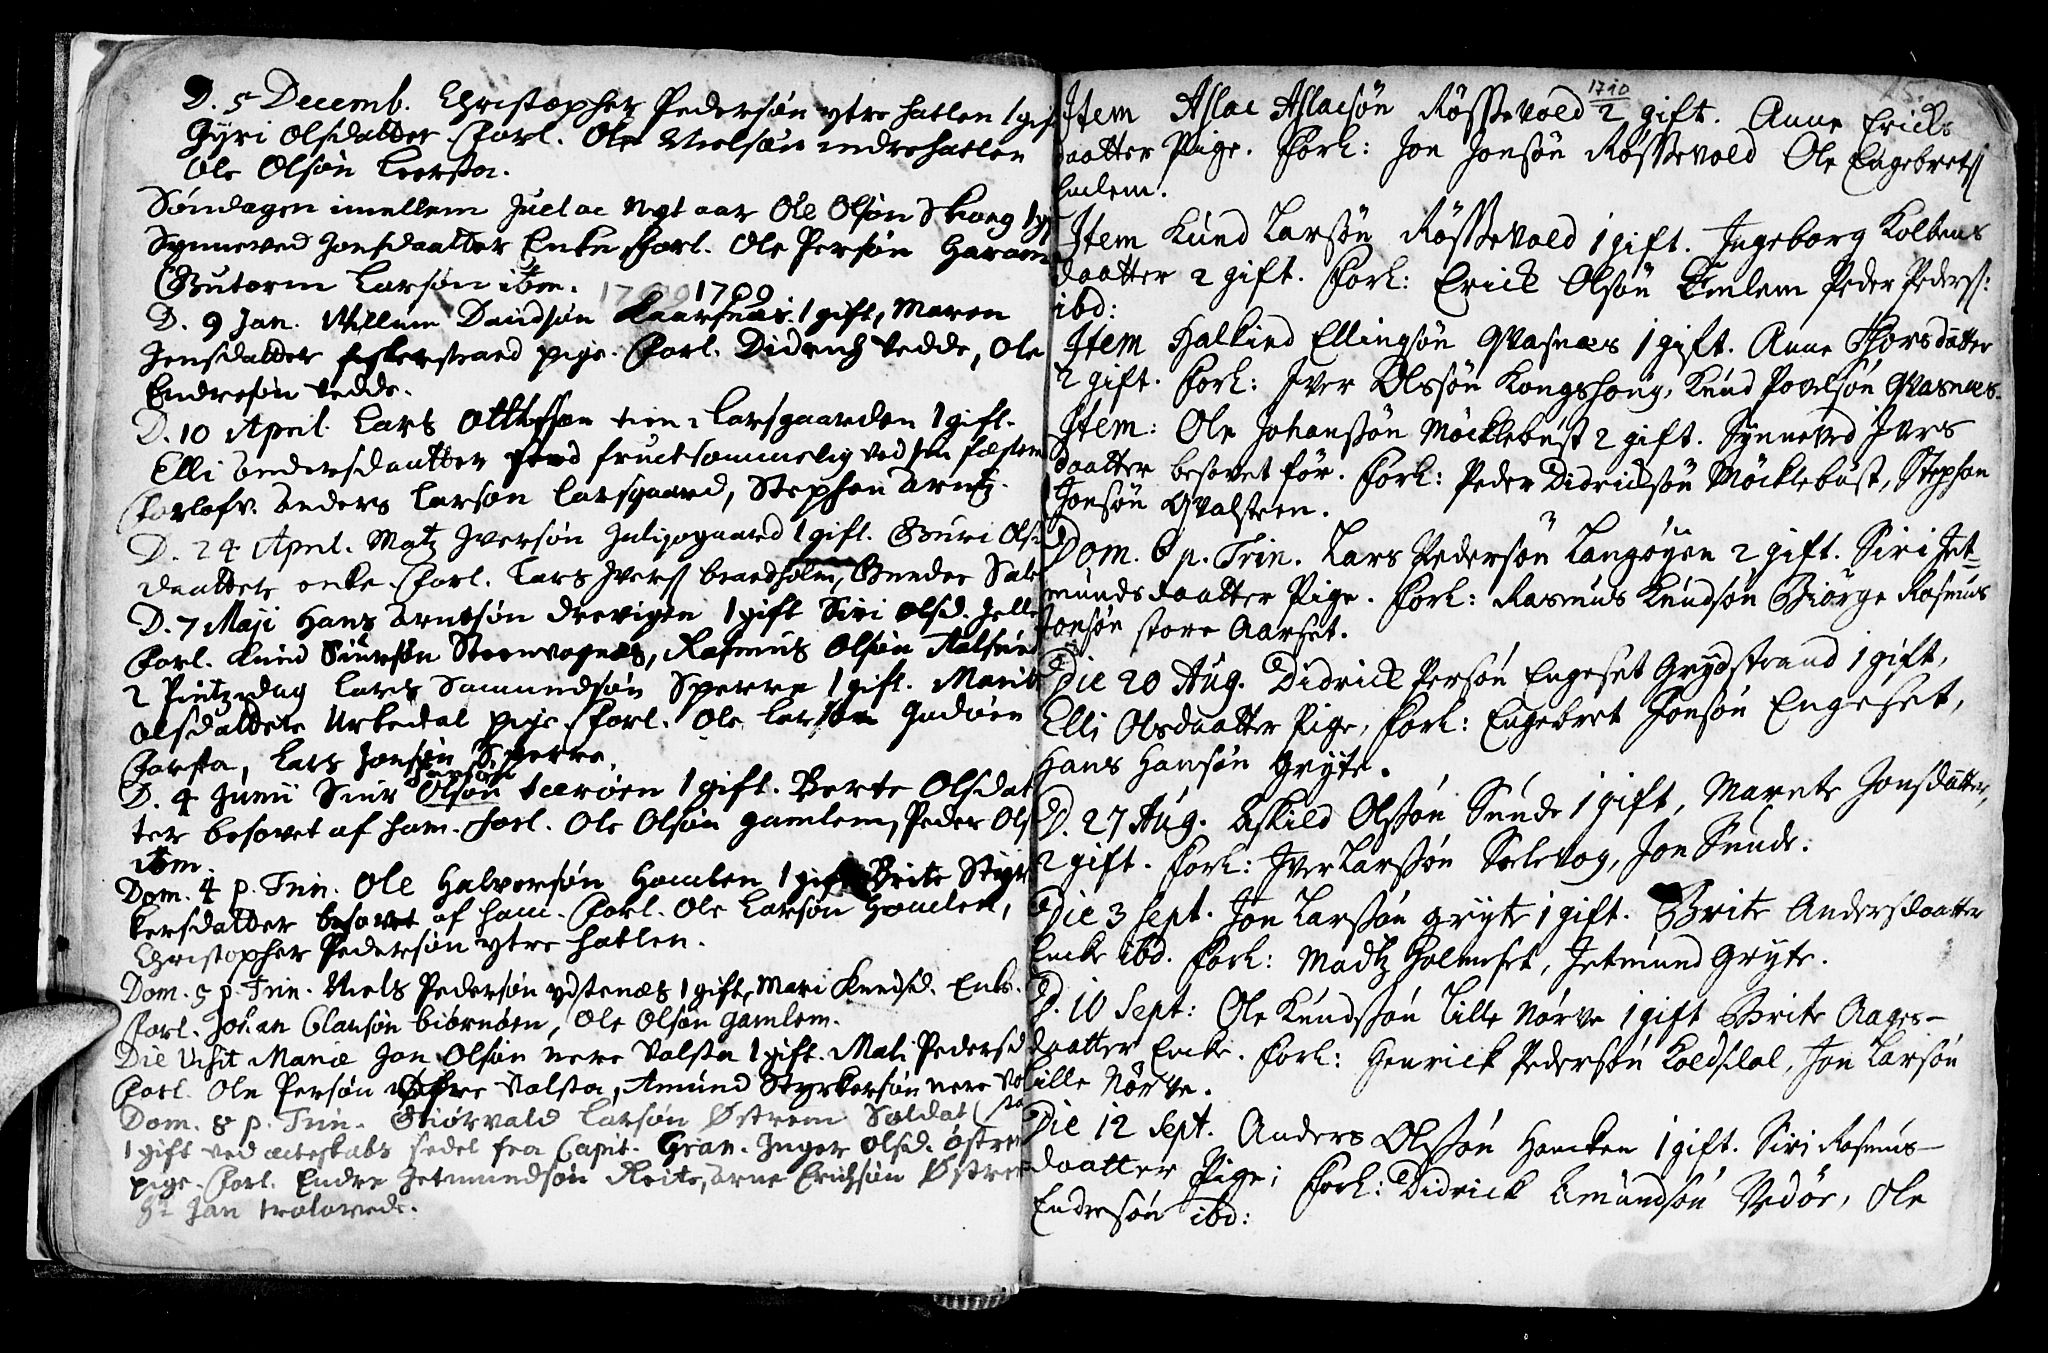 D. 5 Decemb. Christopher Pedersøn ytre hatlen 1 gift
Gyri Olsdatter Forl. Ole Nielsøn indrehatlen
Ole Olsøn Leersta.
Søndagen imellem Juel oc Nyt aar Ole Olsøn Skoug 1 g
Synneved Jonsdaatter Enke Forl. Ole Persøn Haram
Gutorm Larsøn item.
1709
D. 9 Jan. Willum Davidsøn Kaarsnæs 1 gift, Maren
Jensdatter fiskerstrand pige. Forl. Didrich Vedde, Ole
Endresøn Vedde.
D. 10 April Lars Ottesøn tien: Larsgaarden 1 gift.
Elli Andersdaatter fructsommelig ved sin fæstem
Forlofv. Anders Larsøn Larsgaard, Stephen Arntz.
D. 24 April. Matz Iversøn 1 gift. Guri Ols
daatter enke. Forl. Lars Ivers braedholm, Gunder
D. 7 Maji Hans Arntsøn drevigen 1 gift Siri Olsd.
Forl. Knud Siursøn Steenvognæs, Rasmus Olsøn
2 Pintzedag Lars Samundsøn Sperre 1 gift. Marit
Olsdatter Urkedal pige Forl. Ole Larsøn Godøen
Forsta, Lars Jonsøn Sperre.
Jonsøn
D. 4 Junii Siur Olsøn tærøen 1 gift. Berte Olsdat
ter besovet af ham. Forl. Ole Olsøn gamlem, Peder Ols
item.
Dom. 4 p. Trin. Ole Halvorsøn Hamlen 1 gift Brite Styr
kersdatter besovet af ham. Forl. Ole Larsøn Hamlen,
Christopher Pedersøn ytre hatlen.
Dom. 5 p. Trin. Niels Pedersøn ydstenæs 1 gift, Mari Knudsd. Enke.
Forl. Johan Clausøn biørnøen, Ole Olsøn gamlem.
Die Visit Mariæ Jon Olsøn nere Valsta 1 gift. Mali Pedersd
Forl. Ole Persøn øfre Valsta, Amund Styrkersøn nere Val
Dom. 8 p. Trin. Giørvald Larsøn Østrem Soldat (sta
1 gift ved attestabs sedel fra Capit. Gran. Inger Olsd. østrem
pige. Forl. Endre Jetmundsøn Reite, Arne Erichsøn Østrem
Jan trolovede.
1710
Item Aslac Aslacsøn Røssevold 2 gift. Anne Ericks
daatter Pige. Forl: Jon Jonsøn Røssevold Ole Engebrets
Emlem.
Item Knud Larsøn Røssevold 1 gift. Ingeborg Kolbens
daatter 2 gift. Forl: Erick Olsøn Emlem Peder Peders:
ibd:
Item Halkied Ellingsøn Qvasnæs 1 gift. Anne Thorsdatter
2 gift. Forl: Iver Olssøn Kongshoug, Knud Povelsøn Qvasnæs.
Item: Ole Johanssøn Möcklebust 2 gift. Synneved Ivers
daatter besovet før. Forl: Peder Didricksøn Möcklebust, Stephen
Jonsøn Qvalsteen.
Dom. 6 p. Trin. Lars Pedersøn Langøyen 2 gift. Siri Jet=
mundsdaatter Pige. Forl: Rasmus Knudsøn Biørge Rasmus
Jonsøn store Aarset.
Die 20 Aug. Didrick Persøn Engeset Grydstrand 1 gift,
Elli Olsdaatter Pige, Forl: Engebret Jonsøn Engeset,
Hans Hansøn Gryte.
D. 27 Aug. Askild Olssøn Sunde 1 gift, Marete Jonsdatter,
2 gift. Forl: Iver Larssøn Solevog, Jon Sunde.
Die 3 Sept. Jon Larssøn gryte 1 gift. Brite Andersdaatter
Encke ibd. Forl: Madtz Holmeset, Jetmund Gryte.
D. 10 Sept: Ole Knudssøn Lille Nørve 1 gift Brite Aages-
daatter Encke. Forl: Henrick Pedersøn Koldsdal, Jon Larsøn
lille Nørve.
Die 12 Sept. Anders Olssøn Hancken 1 gift. Siri Rasmus-
daatter Pige; Forl: Didrick Amundsøn Vedøe, Ole
Endresøn ibd: